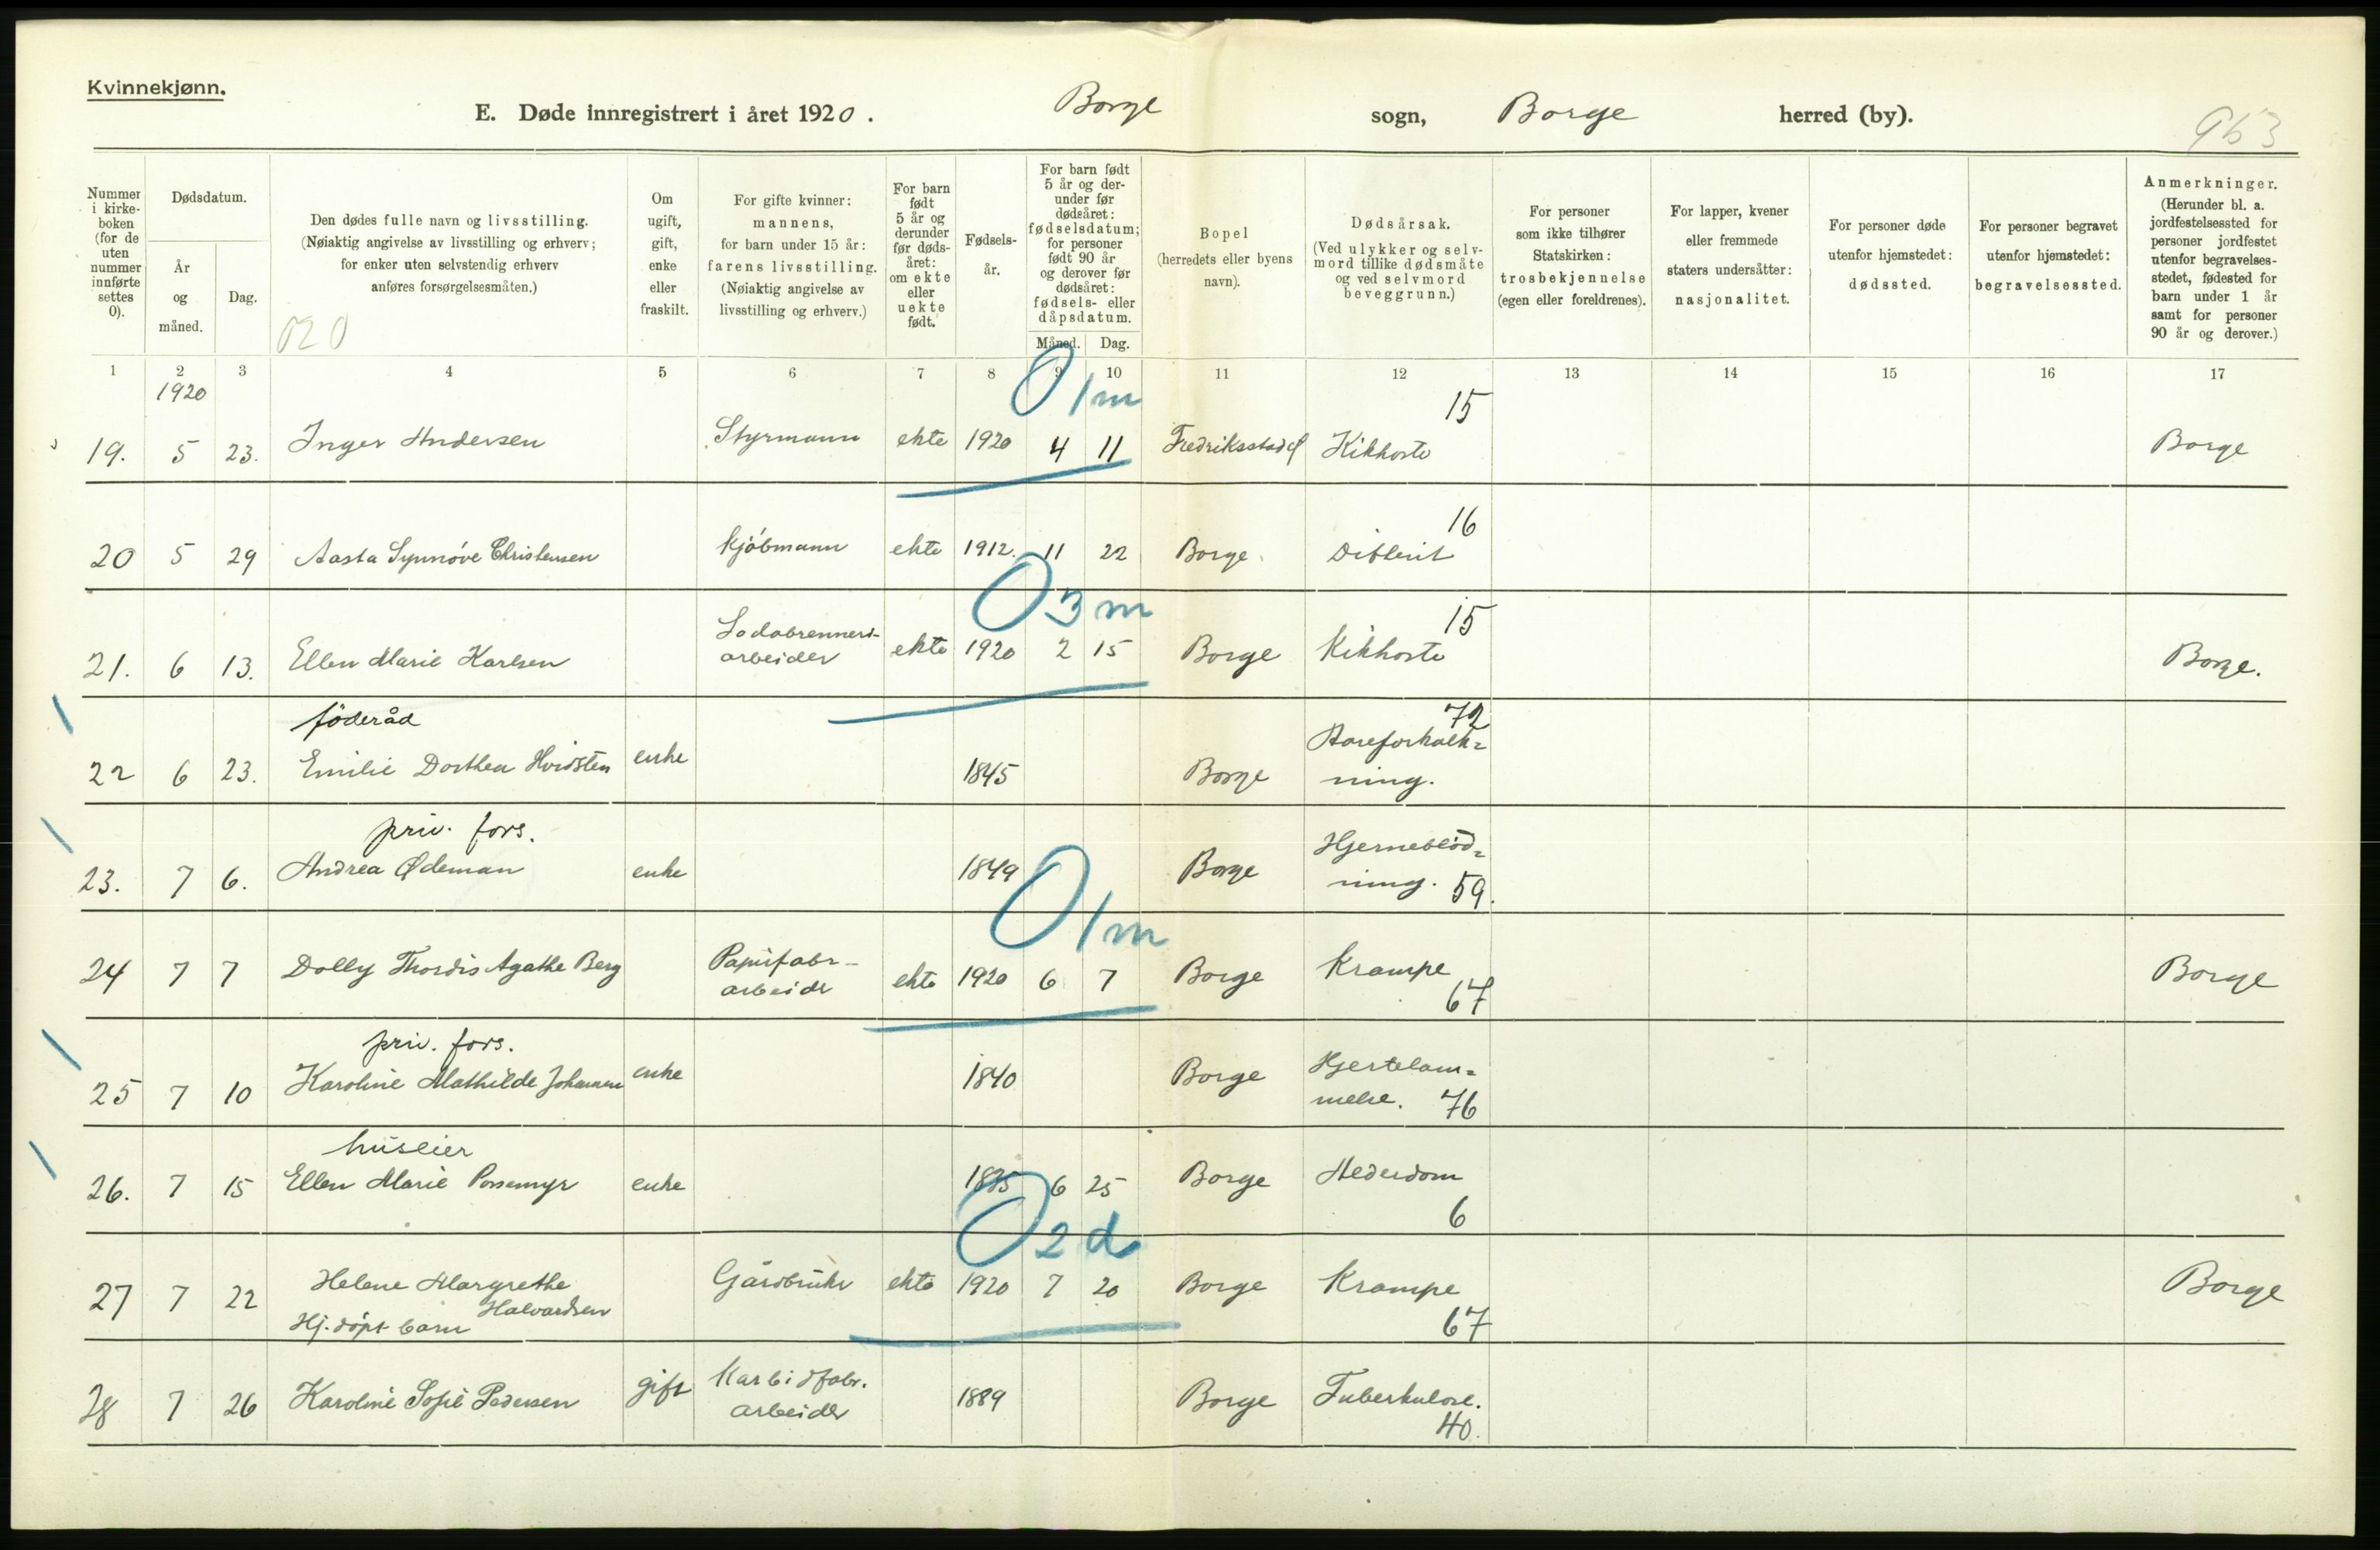 Kvinnekjønn.
E. Døde innregistrert i året 1920. Borge sogn, Borge herred (by).
963
Nummer i kirke-boken (for de uten nummer innførte settes 0).
Dødsdatum.
År og måned.
Dag.
Den dødes fulle navn og livsstilling.
(Nøiaktig angivelse av livsstilling og erhverv;
for enker uten selvstendig erhverv
anføres forsørgelsesmåten.)
020
Om ugift, gift, enke eller fraskilt.
For gifte kvinner:
mannens,
for barn under 15 år:
farens livsstilling.
(Nøiaktig angivelse av
livsstilling og erhverv.)
For barn født 5 år og derunder før døds-året: om ekte eller uekte født.
Fødsels-år.
For barn født 5 år og der-under før dødsåret: fødselsdatum; for personer født 90 år og derover før dødsåret: fødsels- eller dåpsdatum.
Måned. Dag.
Bopel
(herredets eller byens navn).
Dødsårsak.
(Ved ulykker og selv-mord tillike dødsmåte og ved selvmord beveggrunn.)
For personer som ikke tilhører Statskirken: trosbekjennelse (egen eller foreldrenes).
For lapper, kvener eller fremmede staters undersåtter: nasjonalitet.
For personer døde utenfor hjemstedet: dødssted.
For personer begravet utenfor hjemstedet: begravelsessted.
Anmerkninger.
(Herunder bl. a. jordfestelsessted for personer jordfestet utenfor begravelses-stedet, fødested for barn under 1 år samt for personer 90 år og derover.)
1 2 3 4 5 6 7 8 9 10 11 12 13 14 15 16 17
1920
0 1 m
15
19. 5 23. Inger Andersen Styrmann ekte 1920 4 11 Fredriksstad Kikhoste Borge
16
20 5 29 Aasta Synnöve Christensen Kjöbmann ekte 1912. 11 22 Borge Difterit
0 3 m
15
21. 6 13. Ellen Marie Karlsen Sodabrenneri-arbeider ekte 1920 2 15 Borge Kikhoste Borge.
föderåd
72
22 6 23. Emilie Dorthea Hvidsten enke 1845 Borge Aareforkalk=ning.
priv. fors.
23. 7 6. Andrea Ødeman enke 1849 Borge Hjerneblöd=ning. 59.
0 1 m
24 7 7 Dolly Thordis Agathe Berg Papirfabr-arbeider ekte 1920 6 7 Borge Krampe 67 Borge
priv. fors.
25 7 10 Karoline Mathilde Johansen enke 1840 Borge Hjertelam=melse. 76
huseier
26. 7 15 Ellen Marie Possemyr enke 1835 6 25 Borge Alderdom 6
0 2 d
27 7 22 Helene Margrethe Halvardsen Gårdbruker ekte 1920 7 20 Borge Krampe 67 Borge
Hj. döpt barn
28 7 26 Karoline Sofie Pedersen gift Karbidfabr. arbeider 1889 Borge Tuberkulose. 40.